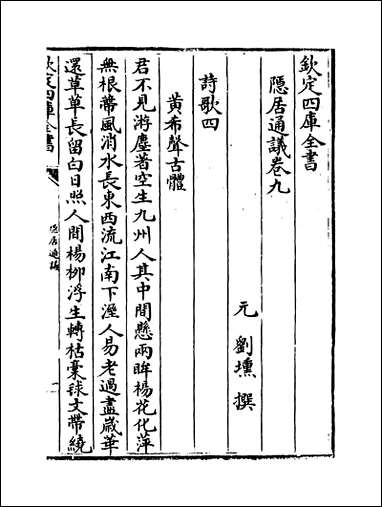 欽定四庫全書
隱居通議卷九
元 劉壎 撰
詩歌四
黄希聲古體
君不見游塵著空生九州人其中間懸兩眸楊花化萍
無根蔕風消水長東西流江南下溼人易老過盡歲華
還草草長留白日照人間楊栁浮生轉枯槁毬文帶繞
欽定四庫全書
隱居通議
一